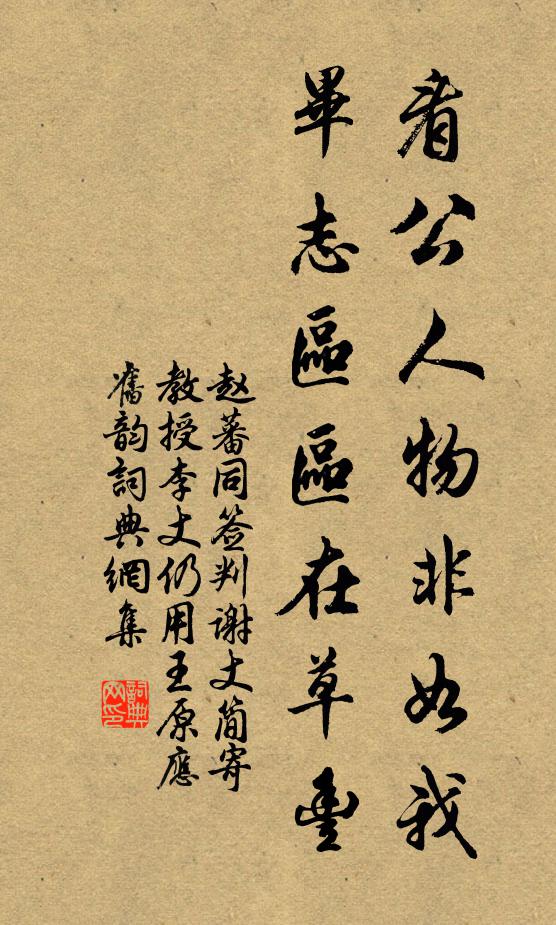 看公人物非如我
畢志區區在草豐
赵蕃同签判谢丈簡寄
教授李丈仍用王原應
舊韵詞典網集
詞典网印